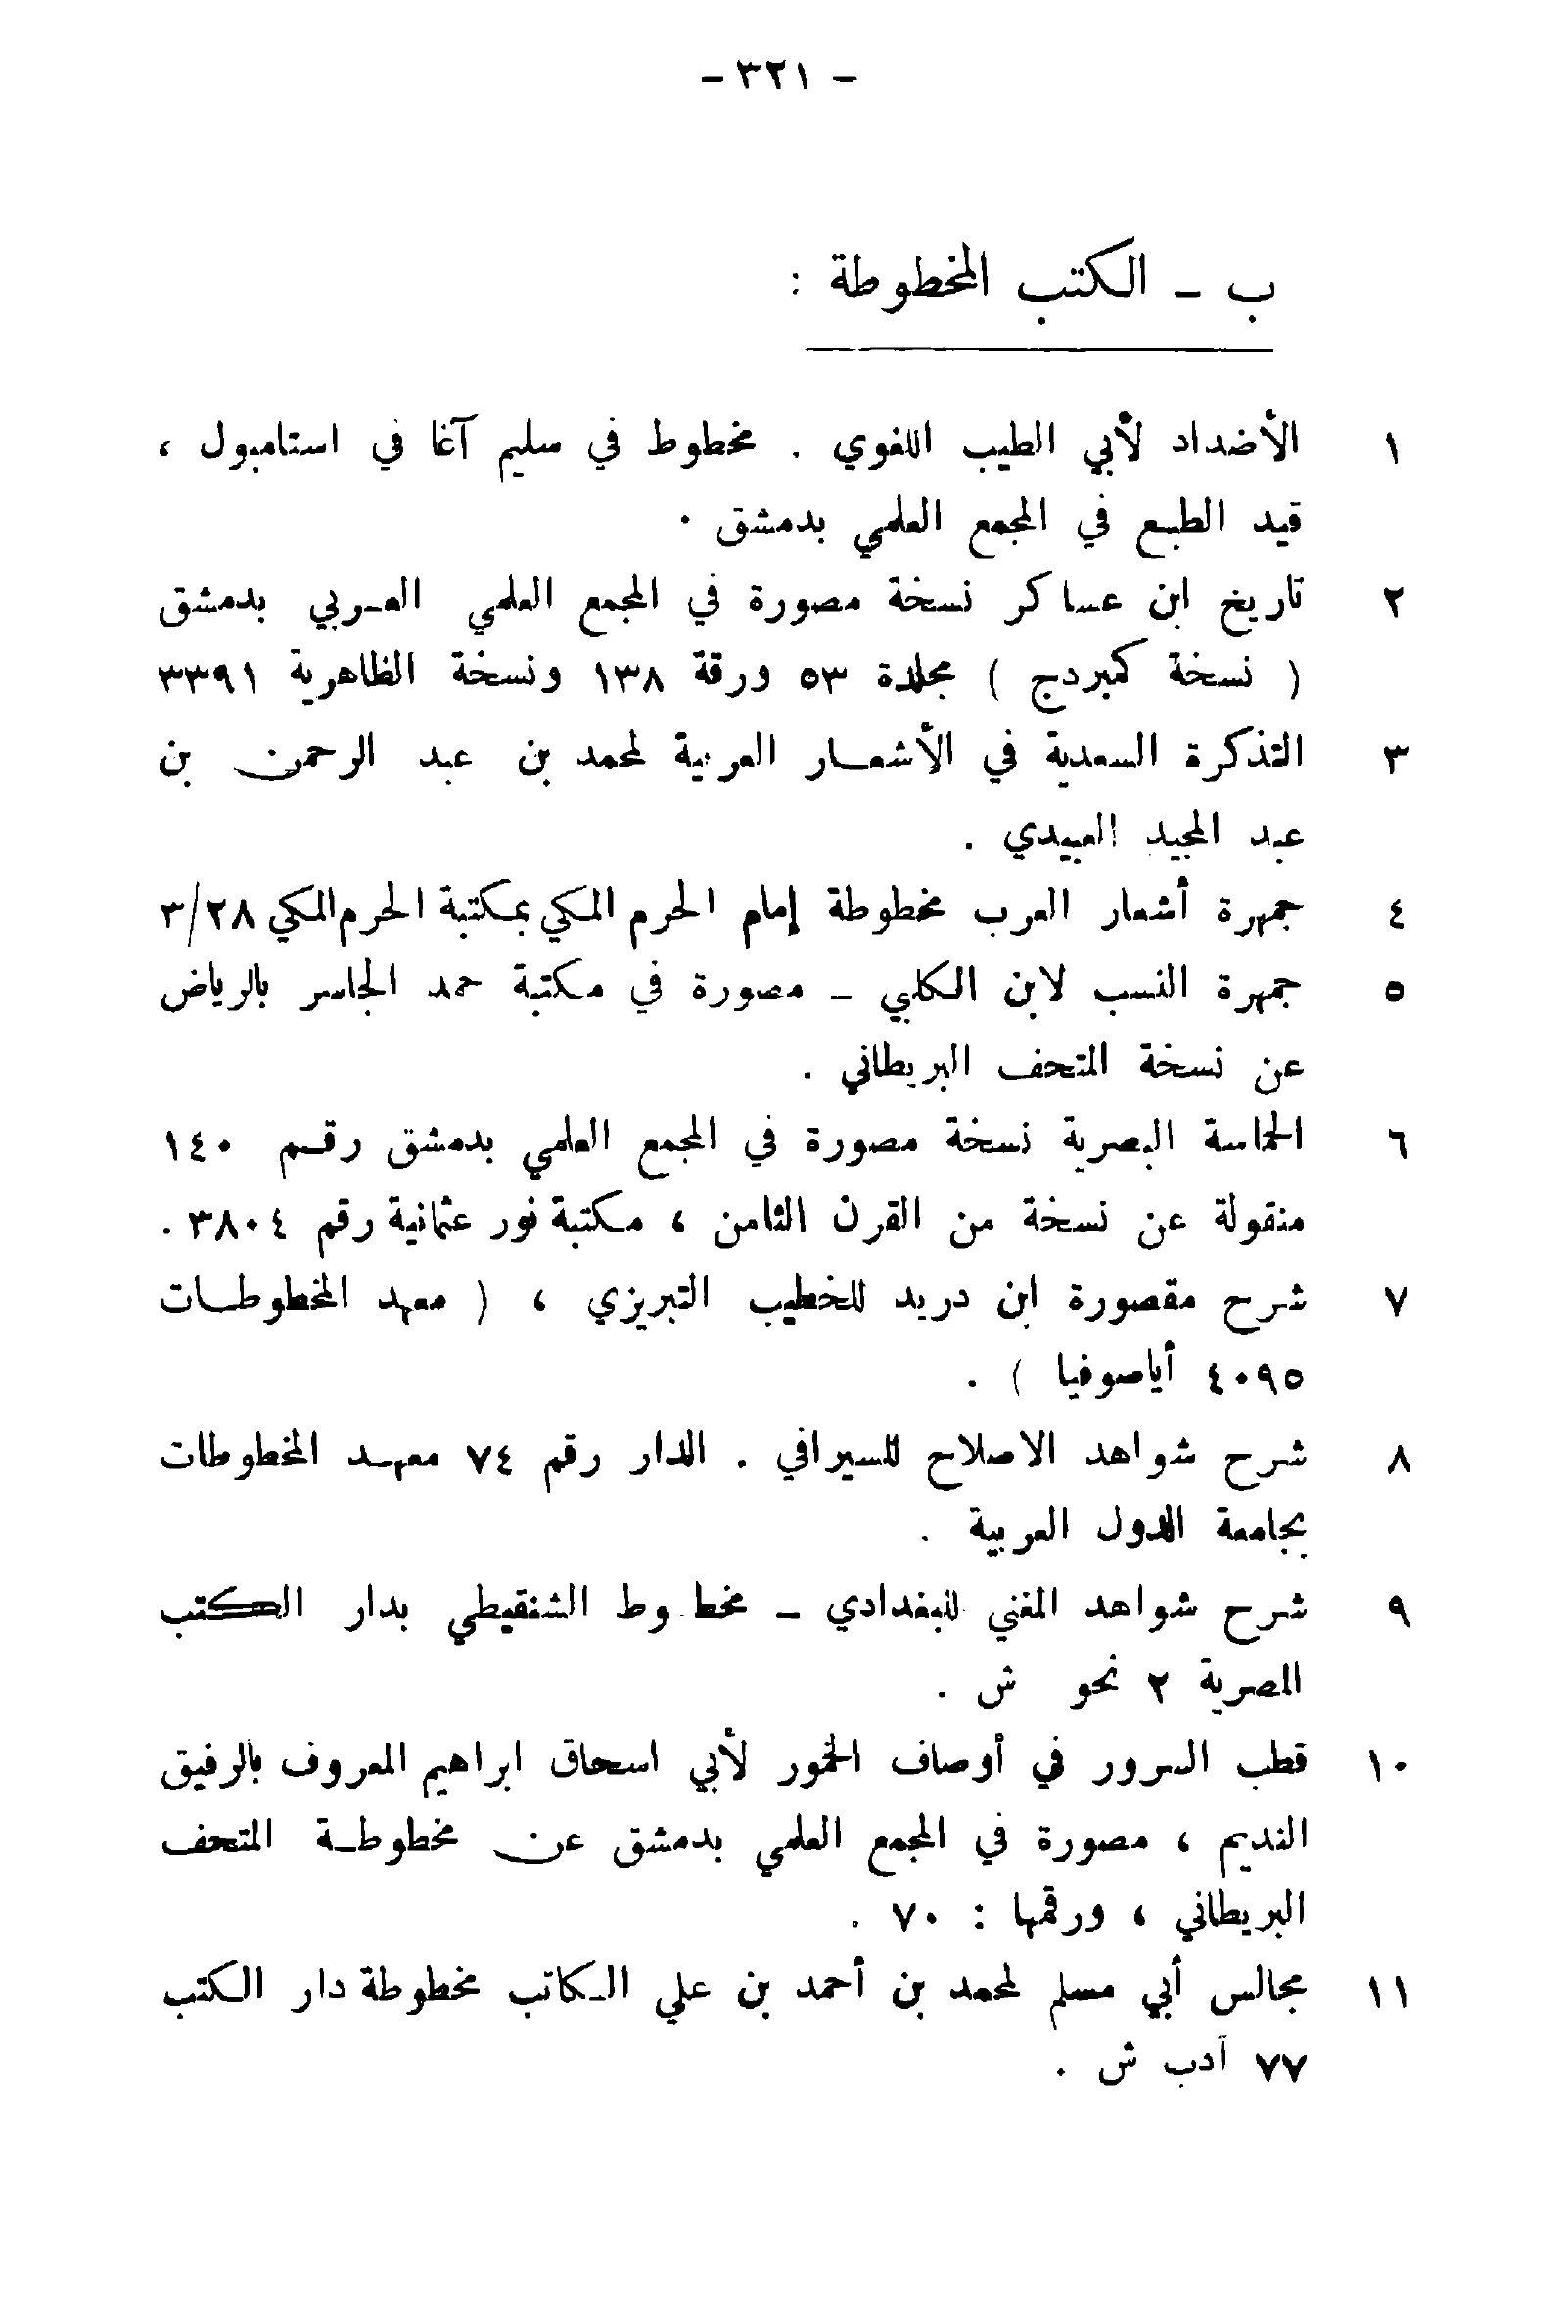 - ٣٢١ -
ب - الكتب المخطوطة :
١ الأضداد لأبي الطيب اللغوي . مخطوط في سليم آغا في استامبول ،
قيد الطبع في المجمع العلمي بدمشق .
٢ تاريخ ابن عساكر نسخة مصورة في المجمع العلمي العربي بدمشق
( نسخة كمبردج ) مجلدة ٥٣ ورقة ١٣٨ ونسخة الظاهرية ٣٣٩١
٣ التذكرة السعدية في الأشعار العربية لمحمد بن عبد الرحمن بن
عبد المجيد العبيدي .
٤ جمهرة أشعار العرب مخطوطة إمام الحرم المكي بمكتبة الحرم المكي ٣/٢٨
٥ جمهرة النسب لابن الكلبي - مصورة في مكتبة حمد الجاسر بالرياض
عن نسخة المتحف البريطاني .
٦ الحماسة البصرية نسخة مصورة في المجمع العلمي بدمشق رقم ١٤٠
منقولة عن نسخة من القرن الثامن ، مكتبة نور عثمانية رقم ٣٨٠٤ .
٧ شرح مقصورة ابن دريد للخطيب التبريزي ، ( معهد المخطوطات
٤٠٩٥ أياصوفيا ) .
٨ شرح شواهد الاصلاح للسيرافي . الدار رقم ٧٤ معهد المخطوطات
بجامعة الدول العربية .
٩ شرح شواهد المغني للبغدادي - مخطوط الشنقيطي بدار الكتب
المصرية ٢ نحو ش .
١٠ قطب السرور في أوصاف الخمور لأبي اسحاق ابراهيم المعروف بالرفيق
النديم ، مصورة في المجمع العلمي بدمشق عن مخطوطة المتحف
البريطاني ، ورقمها : ٧٠ .
١١ مجالس أبي مسلم لمحمد بن أحمد بن علي الكاتب مخطوطة دار الكتب
٧٧ أدب ش .